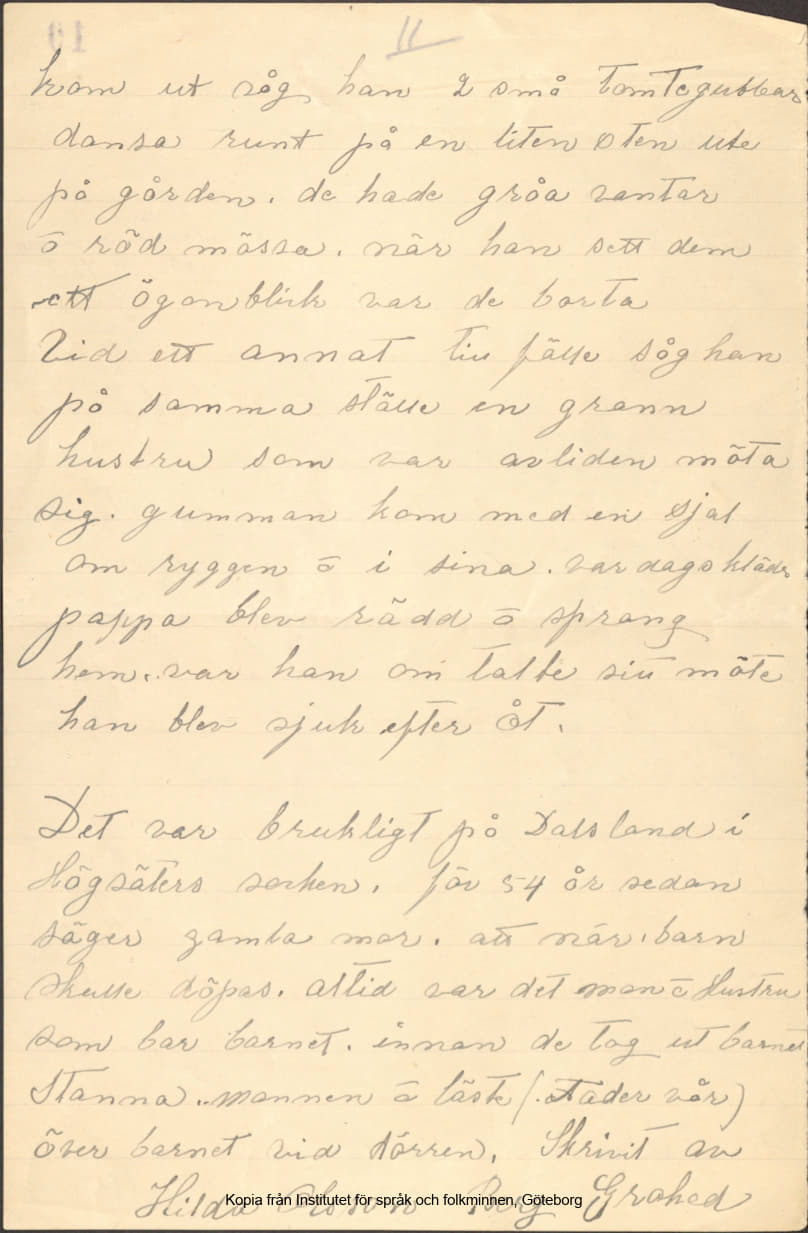 11
kom ut såg han 2 små Tomtegubbar
dansa runt på en liten sten ute
på gården. de hade gråa vantar
ō röd mössa. när han sett dem
ett ögonblick var de borta
Vid ett annat tillfälle såg han
på samma ställe en grann
hustru som var avliden möta
sig. gumman kom med en sjal
om ryggen ō i sina. vardagskläder
pappa blev rädd ō sprang
hem. var han om talte sitt möte
han blev sjuk efter åt.
Det var brukligt på Dalsland i
Högsäters socken. för 54 år sedan
säger gamla mor. att när barn
skulle döpas. alltid var det man ō Hustru
som bar barnet. innan de tog ut barnet
Stanna. mannen ō läste (. Fader vår)
över barnet vid dörren. Skrivit av
Hilda Olsson Berg
Kopia från Institutet för språk och folkminnen, Göteborg